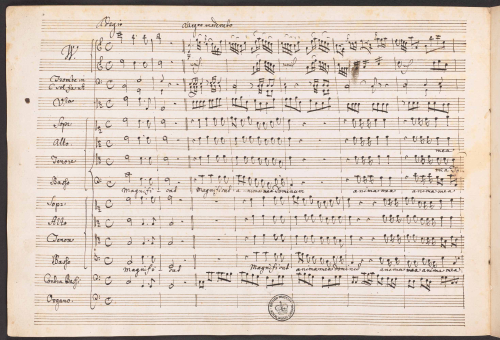 Adagio Allegro moderato
W.
Trombe in
C sol fa ut
Viole
Sopr.
Alto.
Tenore
Basso
Magnificat Magnificat anima mea Dominum anima mea anima mea
Sopr.
Alto
Tenore
Basso
Magnificat Magnificat anima mea Dominum anima mea anima mea
Contra Bassi
Organo.